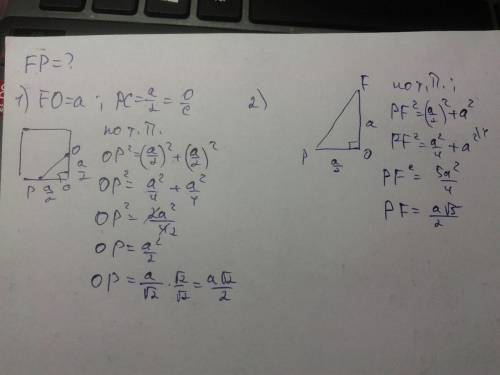 FP=?
1) FO=a; PC=a/2=O/C
O
a/2
P a/2 C
по т. П.
OP²=(a/2)²+(a/2)²
OP²=a²/4+a²/4
OP²=2a²/42
OP=a²/2
OP=a/√2·√2/√2=a√2/2
2)
F
a
P a/2 O
по т. П.:
PF²=(a/2)²+a²
PF²=a²/4+a²
PF²=5a²/4
PF=a√5/2